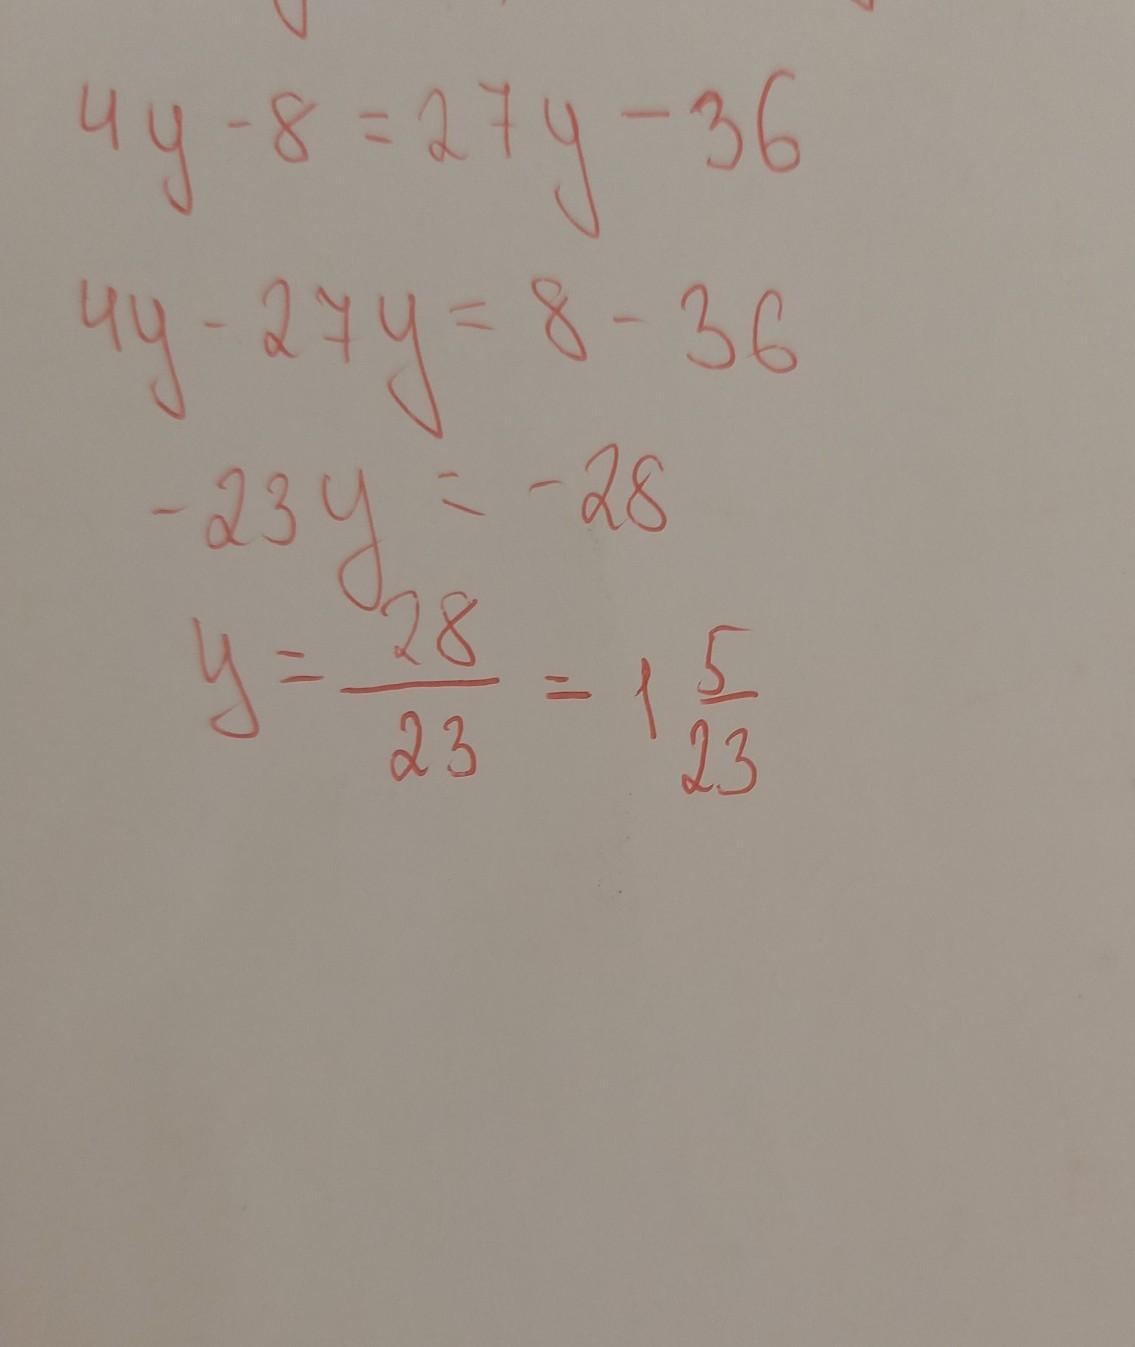 4y - 8 = 27y - 36
4y - 27y = 8 - 36
-23y = -28
y = 28/23 = 1 5/23